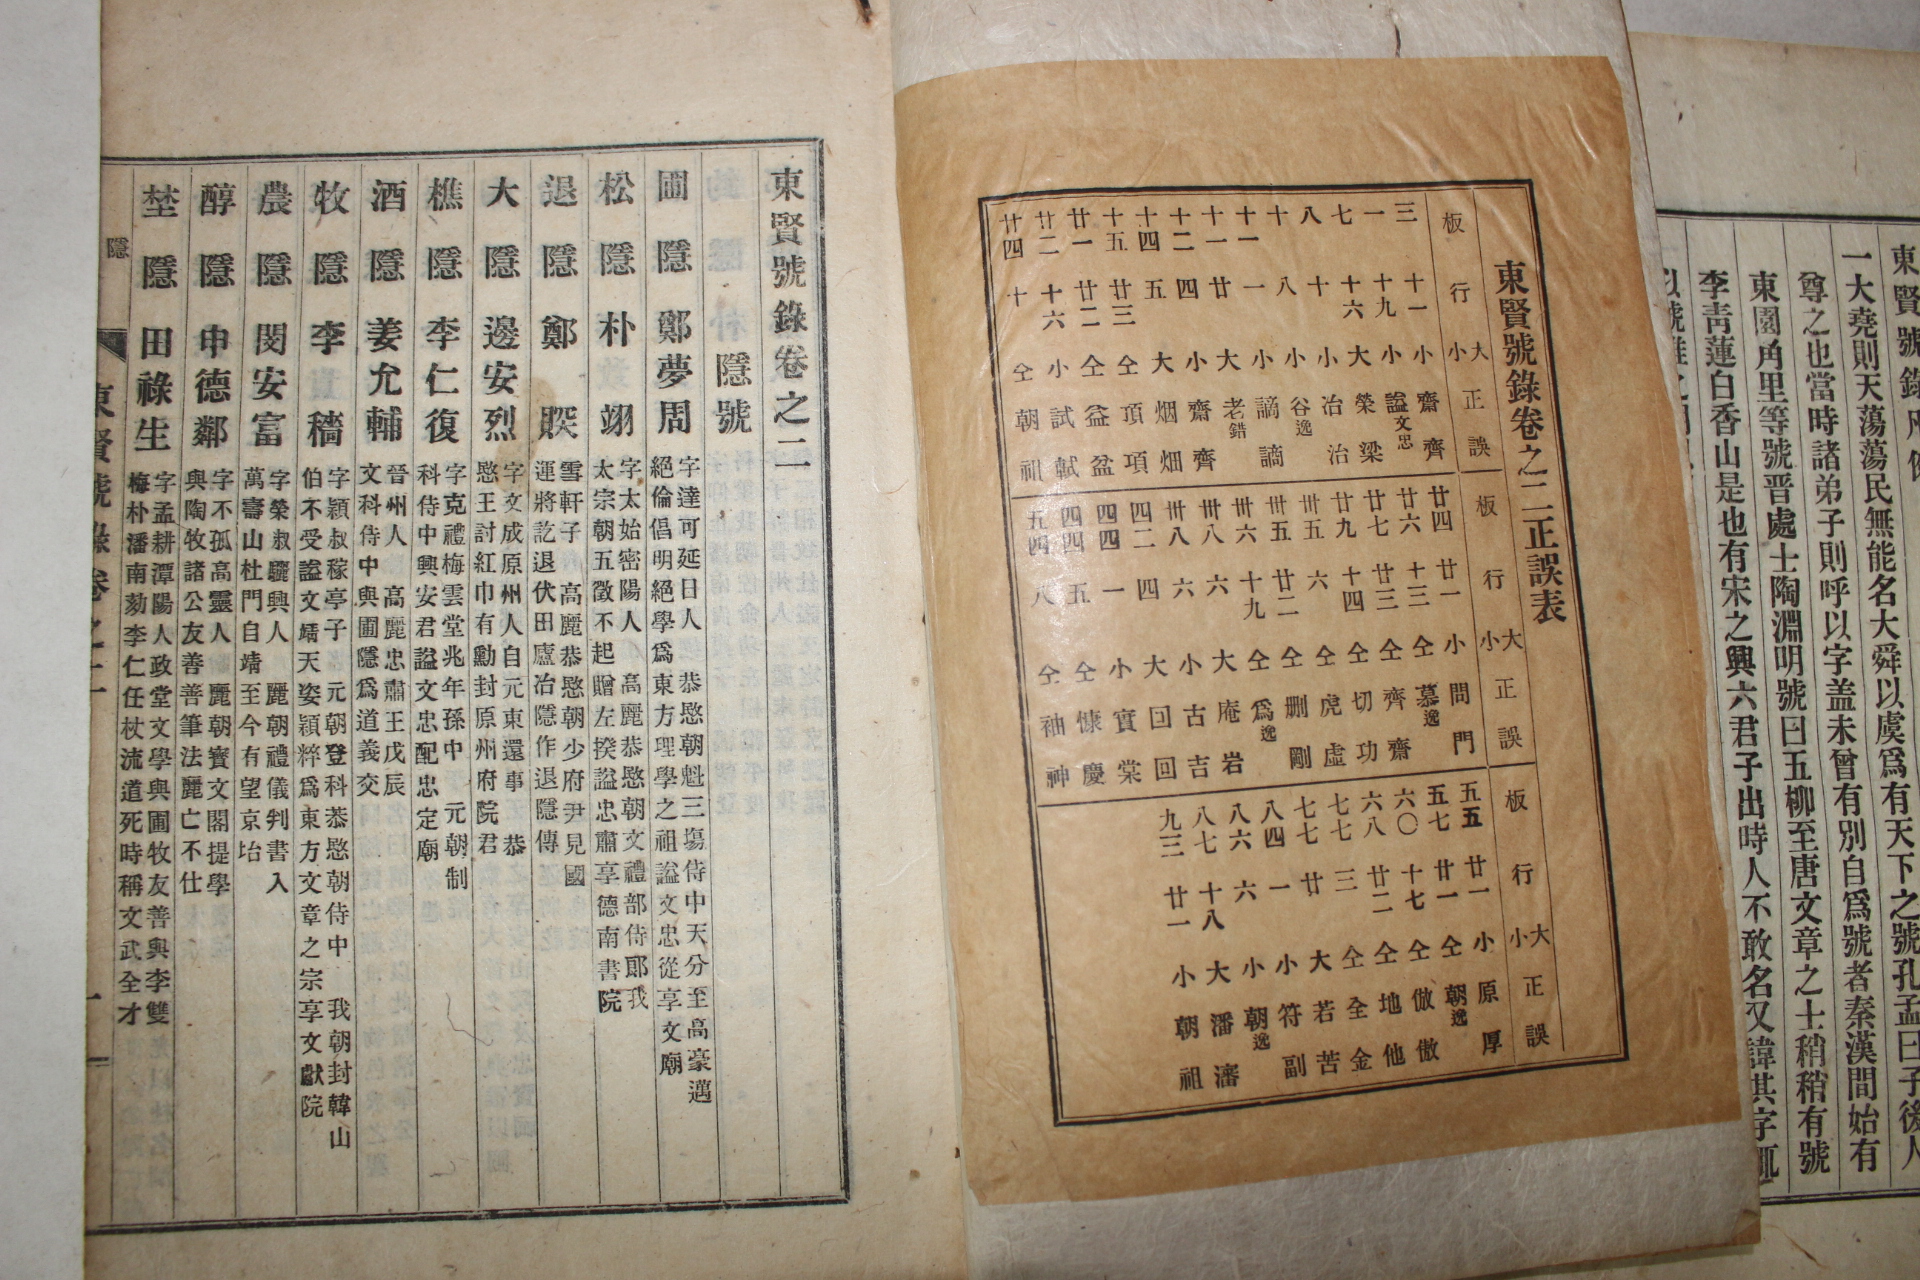 東賢號錄凡例
一大堯則天蕩蕩民無能名大舜以虞爲有天下之號孔孟曰子後人
尊之也當時諸弟子則呼以字盖未曾有別自爲號者秦漢間始有
東園角里等號晋處士陶淵明號曰五柳至唐文章之士稍稍有號
李靑蓮白香山是也有宋之興六君子出時人不敢名又諱其字輒
東賢號錄卷之二正誤表
板 行 大小 正 誤
三 十一 小 齋 齊
一 十九 小 謚文忠
七 十六 大 榮 梁
八 十 小 冶 治
十 八 小 谷逸
十一 一 小 謫 謫
十一 廿 大 老錯
十二 四 小 齋 齊
十四 五 大 烟 畑
十五 廿三 仝 項 項
廿一 廿二 仝 益 盆
廿二 十六 小 試 献
廿四 十 仝 朝 祖
板 行 大小 正 誤
廿四 廿一 小 問 門
廿六 十三 仝 慕逸
廿七 廿三 仝 齊 齋
廿九 十四 仝 切 功
卅五 六 仝 虎 虛
卅五 廿二 仝 删 剛
卅六 十九 仝 爲逸
卅八 六 大 庵 岩
卅八 六 小 古 吉
四二 四 大 回 回
四四 一 小 實 棠
四四 五 仝 慷 慶
五四 八 仝 袖 神
板 行 大小 正 誤
五五 廿一 小 原 厚
五七 廿一 仝 朝逸
六〇 十七 仝 倣 傲
六八 廿二 仝 地 他
七七 三 仝 全 金
七七 廿 大 若 苦
八四 一 小 符 副
八六 六 小 朝逸
八七 十八 大 潘 瀋
九三 廿一 小 朝 祖
東賢號錄卷之二
隱號
圃隱 鄭夢周 字達可延日人 恭愍朝魁三塲侍中天分至高豪邁
絕倫倡明絕學爲東方理學之祖謚文忠從享文廟
松隱 朴翊 字太始密陽人 高麗恭愍朝文禮部侍郞我
太宗朝五徵不起贈左揆謚忠肅享德南書院
退隱 鄭 雪軒子 高麗恭愍朝少府尹見國
運將訖退伏田廬冶隱作退隱傳
大隱 邊安烈 字文成原州人自元東還事 恭
愍王討紅巾有勳封原州府院君
樵隱 李仁復 字克禮梅雲堂兆年孫中 元朝制
科侍中興安君謚文忠配忠定廟
酒隱 姜允輔 晉州人 高麗忠肅王戊辰
文科侍中與圃隱爲道義交
牧隱 李穡 字穎叔稼亭子 元朝登科恭愍朝侍中 我朝封韓山
伯不受謚文靖天姿穎粹爲東方文章之宗享文獻院
農隱 閔安富 字榮叔驪興人 麗朝禮儀判書入
萬壽山杜門自靖至今有望京坮
醇隱 申德鄰 字不孤高靈人 麗朝寶文閣提學
與陶牧諸公友善善筆法麗亡不仕
埜隱 田祿生 字孟耕潭陽人政堂文學與圃牧友善與李雙
梅朴潘南劾李仁任杖流道死時稱文武全才
隱
東賢號錄卷之二
一